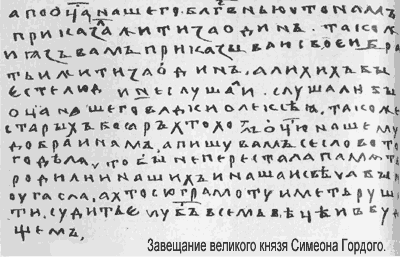 апооц҃анашего.блг҃веньючтонамъ
приказалжитизаодинъ. також
иꙗзъвамъприказываисвоеибра
тьижитизаодинъ.алихихъбы
естелюдинеслушали. слушалибы
оц҃анашеговладкиолексѣꙗ, такоже
старыхъбоꙗръхтохо
добраинамъ.апишувамъсесловото
годѣлꙗ,тобынепересталапамѧть
родилиинашихъинашаисвѣчабын
оугасла,ахтосюграмотуиметьруши
ти,судитьемубъ҃всемьвѣцѣивбуду
щемъ,
Завещание великого князя Симеона Гордого.